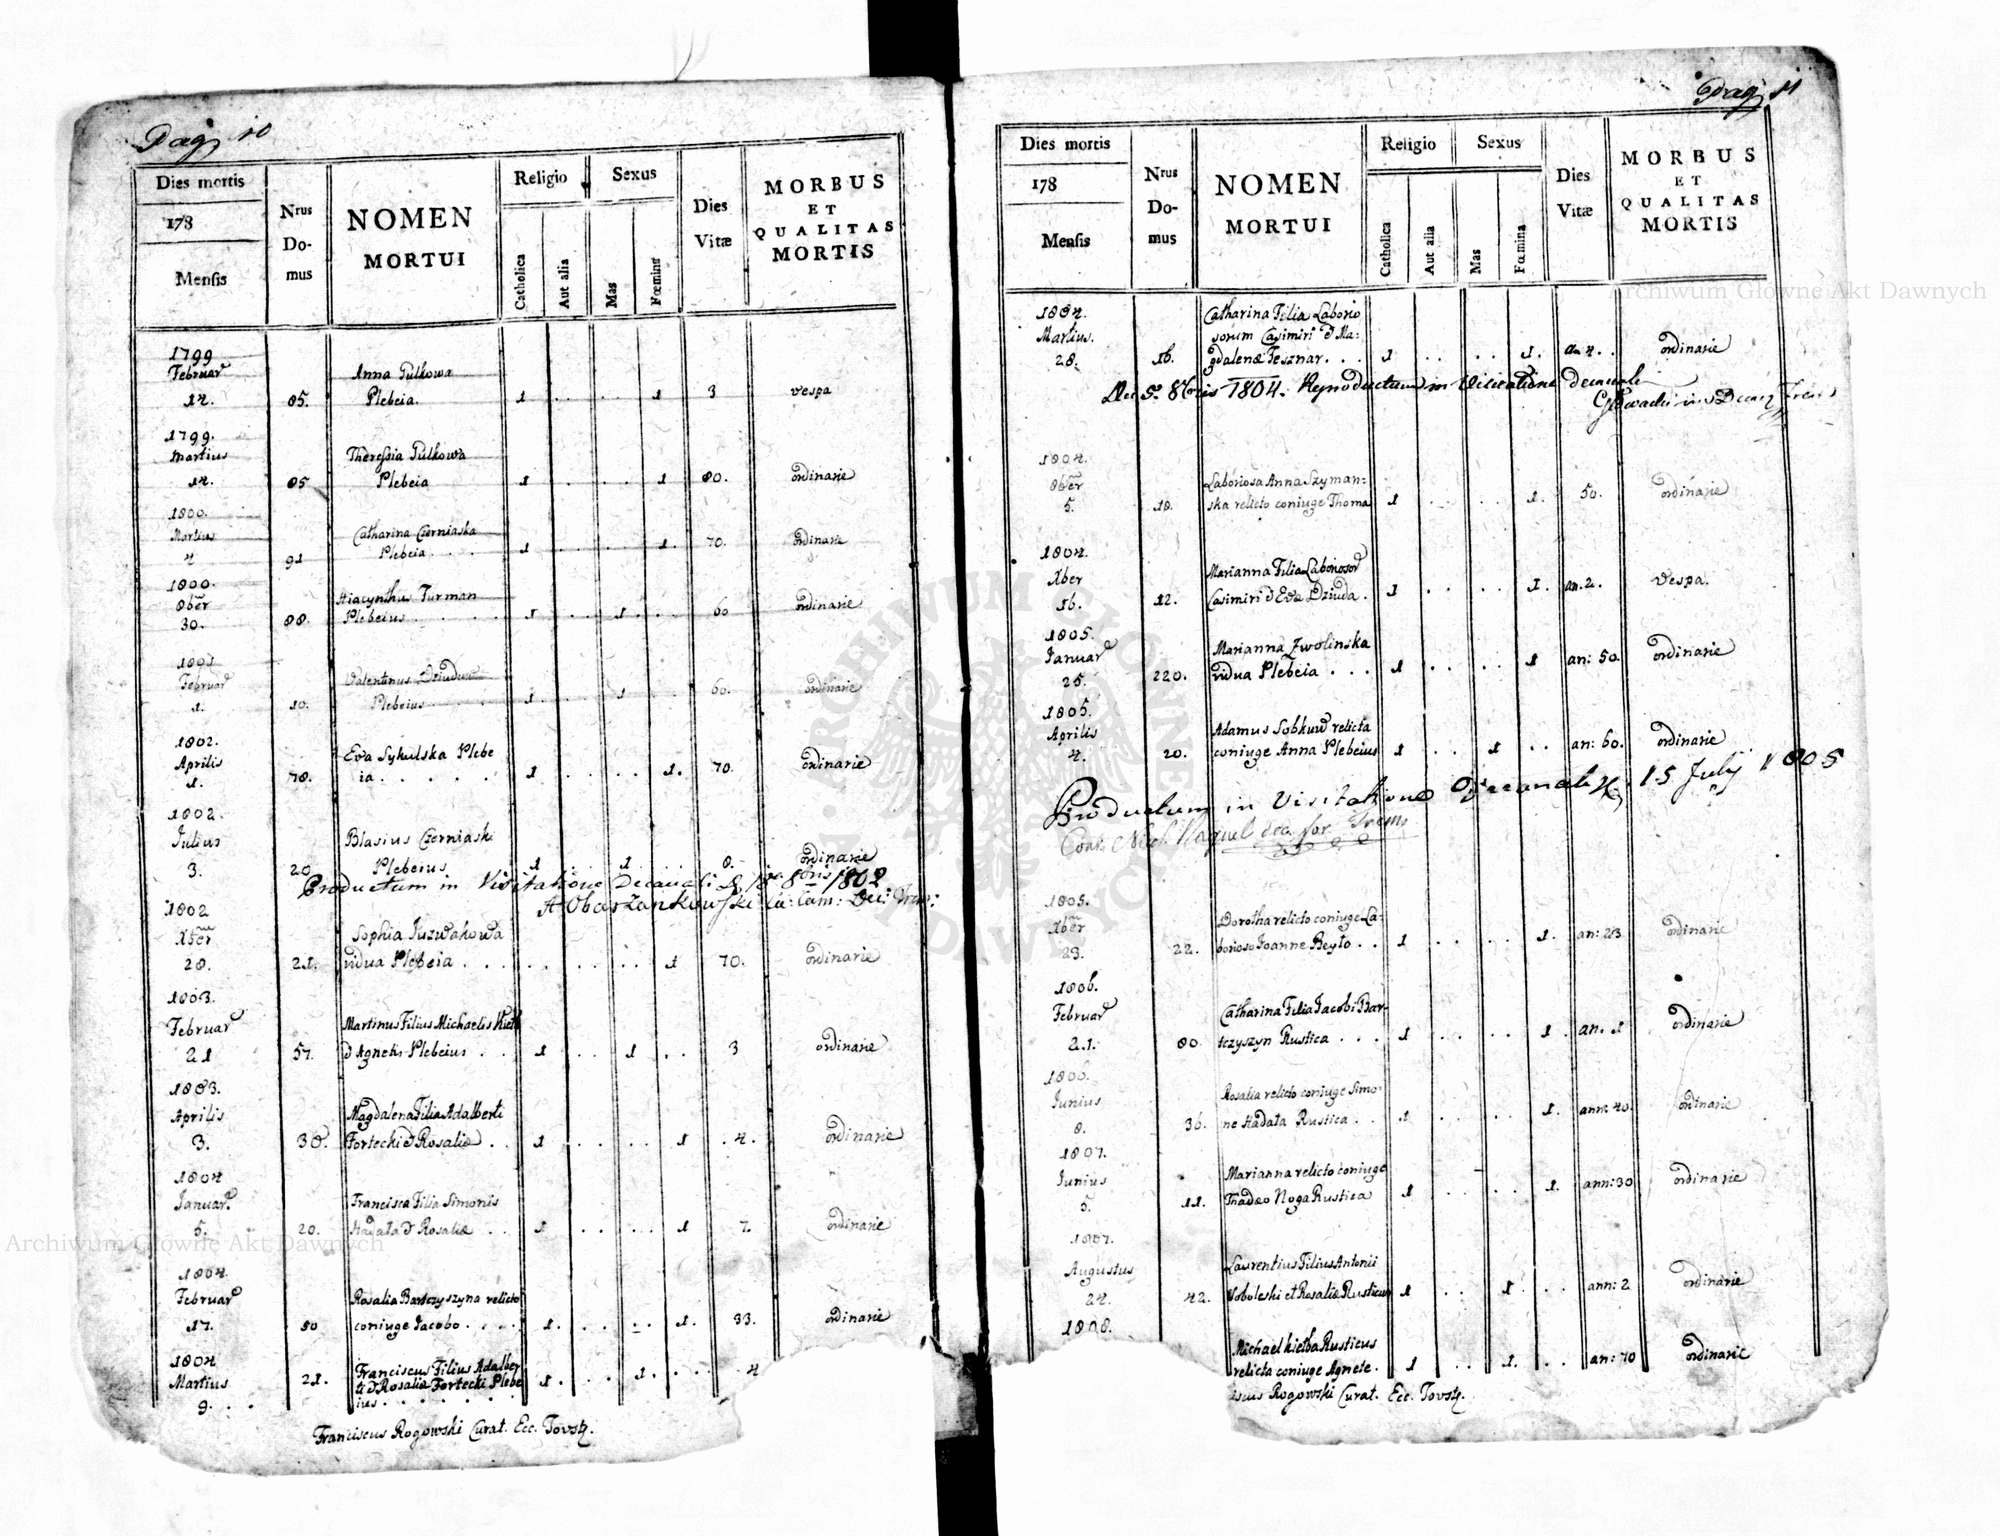 Pag 10
Dies mortis
178
Mensis
Nrus Do-mus
NOMEN
MORTUI
Religio
Catholica
Aut alia
Sexus
Mas
Fœmina
Dies Vitæ
MORBUS
ET
QUALITAS
MORTIS
1799
Februar
Anna Pulkowa
14. 85. Plebeia. 1 . . . 1 3 vespa
1799.
Martius
Theressia Pulkowa
14. 85 Plebeia 1 . . . 1 80. ordinarie
1800.
Martius
Catharina Czerniaska
4 91 Plebeia . . . 1 . . . 1. 70. ordinarie
1800.
8ber
Hiacynthus Furman
30. 88. Plebeius . . . . 1 . . 1 . . 60 ordinarie
1801
Februar
Valentinus
1. 10. Plebeius 1 . . 1 . . 60. ordinarie
1802.
Aprilis
Eva Sykulska Plebe
1. 78. ia . . . . . 1 . . . 1. 70. ordinarie
1802.
Julius
Blasius Czerniaski
3. 20 Plebeius 1 . . 1 . . 8. ordinarie
Productum in Visitatione Decanali D. 18a 8bris 1802
A Obarzankowski
1802
Xber
Sophia Juzwakowa
28. 21. vidua Plebeia . . . . . . . 1 70. ordinarie
1803.
Februar
Martinus Filius Michaelis Kiełb
21 57. & Agnetis Plebeius . . 1 . . 1 . . 3 ordinarie
1803.
Aprilis
Magdalena Filia Adalberti
3. 38. Fortecki & Rosaliæ . . 1 . . . . 1 . 4. ordinarie
1804
Januar.
Francisca Filia Simonis
5. 20. Hadała & Rosaliæ . . 1 . . . . 1 7. ordinarie
1804.
Februar
Rosalia Bartczyszyna relicto
17. 50 coniuge Jacobo . . . . 1. . . . . 1. 33. ordinarie
1804
Martius
9. . .
21.
Franciscus Filius Adalber
ti & Rosaliæ Fortecki Plebe
ius . . . . . .
1. . . 1. . . . 4
Franciscus Rogowski Curat. Ecc. Tovst.
Pag 11
Dies mortis
178
Mensis
Nrus Do-mus
NOMEN
MORTUI
Religio
Catholica
Aut alia
Sexus
Mas
Fœmina
Dies Vitæ
MORBUS
ET
QUALITAS
MORTIS
1804.
Martius.
28.
16.
Catharina Filia Laborio
sorum Casimiri & Ma:
gdalenæ Tesznar . . .
1 . . . . 1. an 4. . ordinarie
Die 5a 8bris 1804. Reproductum in Visitatione decanali
1804.
8ber
Laboriosa Anna Szyman=
5. 18. ska relicto coniuge Thoma 1 . . . . 1. 50. ordinarie
1804.
Xber
Marianna Filia Laboriosor
16. 12. Casimiri & Eva Dziuda . 1 . . . . 1. an. 2. vespa.
1805.
Januar
Marianna Zwolinska
25. 220. vidua Plebeia . . . 1 . . . . 1 an: 50. ordinarie
1805.
Aprilis
Adamus Sobkuw relicta
4. 20. coniuge Anna Plebeius 1 . . 1 . . an: 60. ordinarie
Productum in Visitatione Decanali 15 July 1805
1805.
Xber
Dorotha relicto coniuge La-
23. 22. borioso Joanne Beyło . . 1 . . . . 1. an: 23 ordinarie
1806.
Februar
Catharina Filia Jacobi Bar-
21. 80. tczyszyn Rustica . . . 1 . . . . 1 . an. 1 ordinarie
1806.
Junius
Rosalia relicto coniuge Simo-
8. 36. ne Hadała Rustica . . 1 . . . . 1. ann: 40. ordinarie
1807.
Junius
Marianna relicto coniuge
5. 11. Thadeo Noga Rustica 1 . . . . 1. ann: 30 ordinarie
1807.
Augustus
Laurentius Filius Antonii
24. 42. Soboleski et Rosaliæ Rusticus 1 . . 1 . . ann: 2 ordinarie
1808.
Michael Kiełba Rusticus
relicta coniuge Agnete . 1 . . 1. . . an: 70 ordinarie
iscus Rogowski Curat. Ecc. Tovst.
Archiwum Główne Akt Dawnych
Archiwum Główne Akt Dawnych
ARCHIWUM GŁÓWNE AKT DAWNYCH